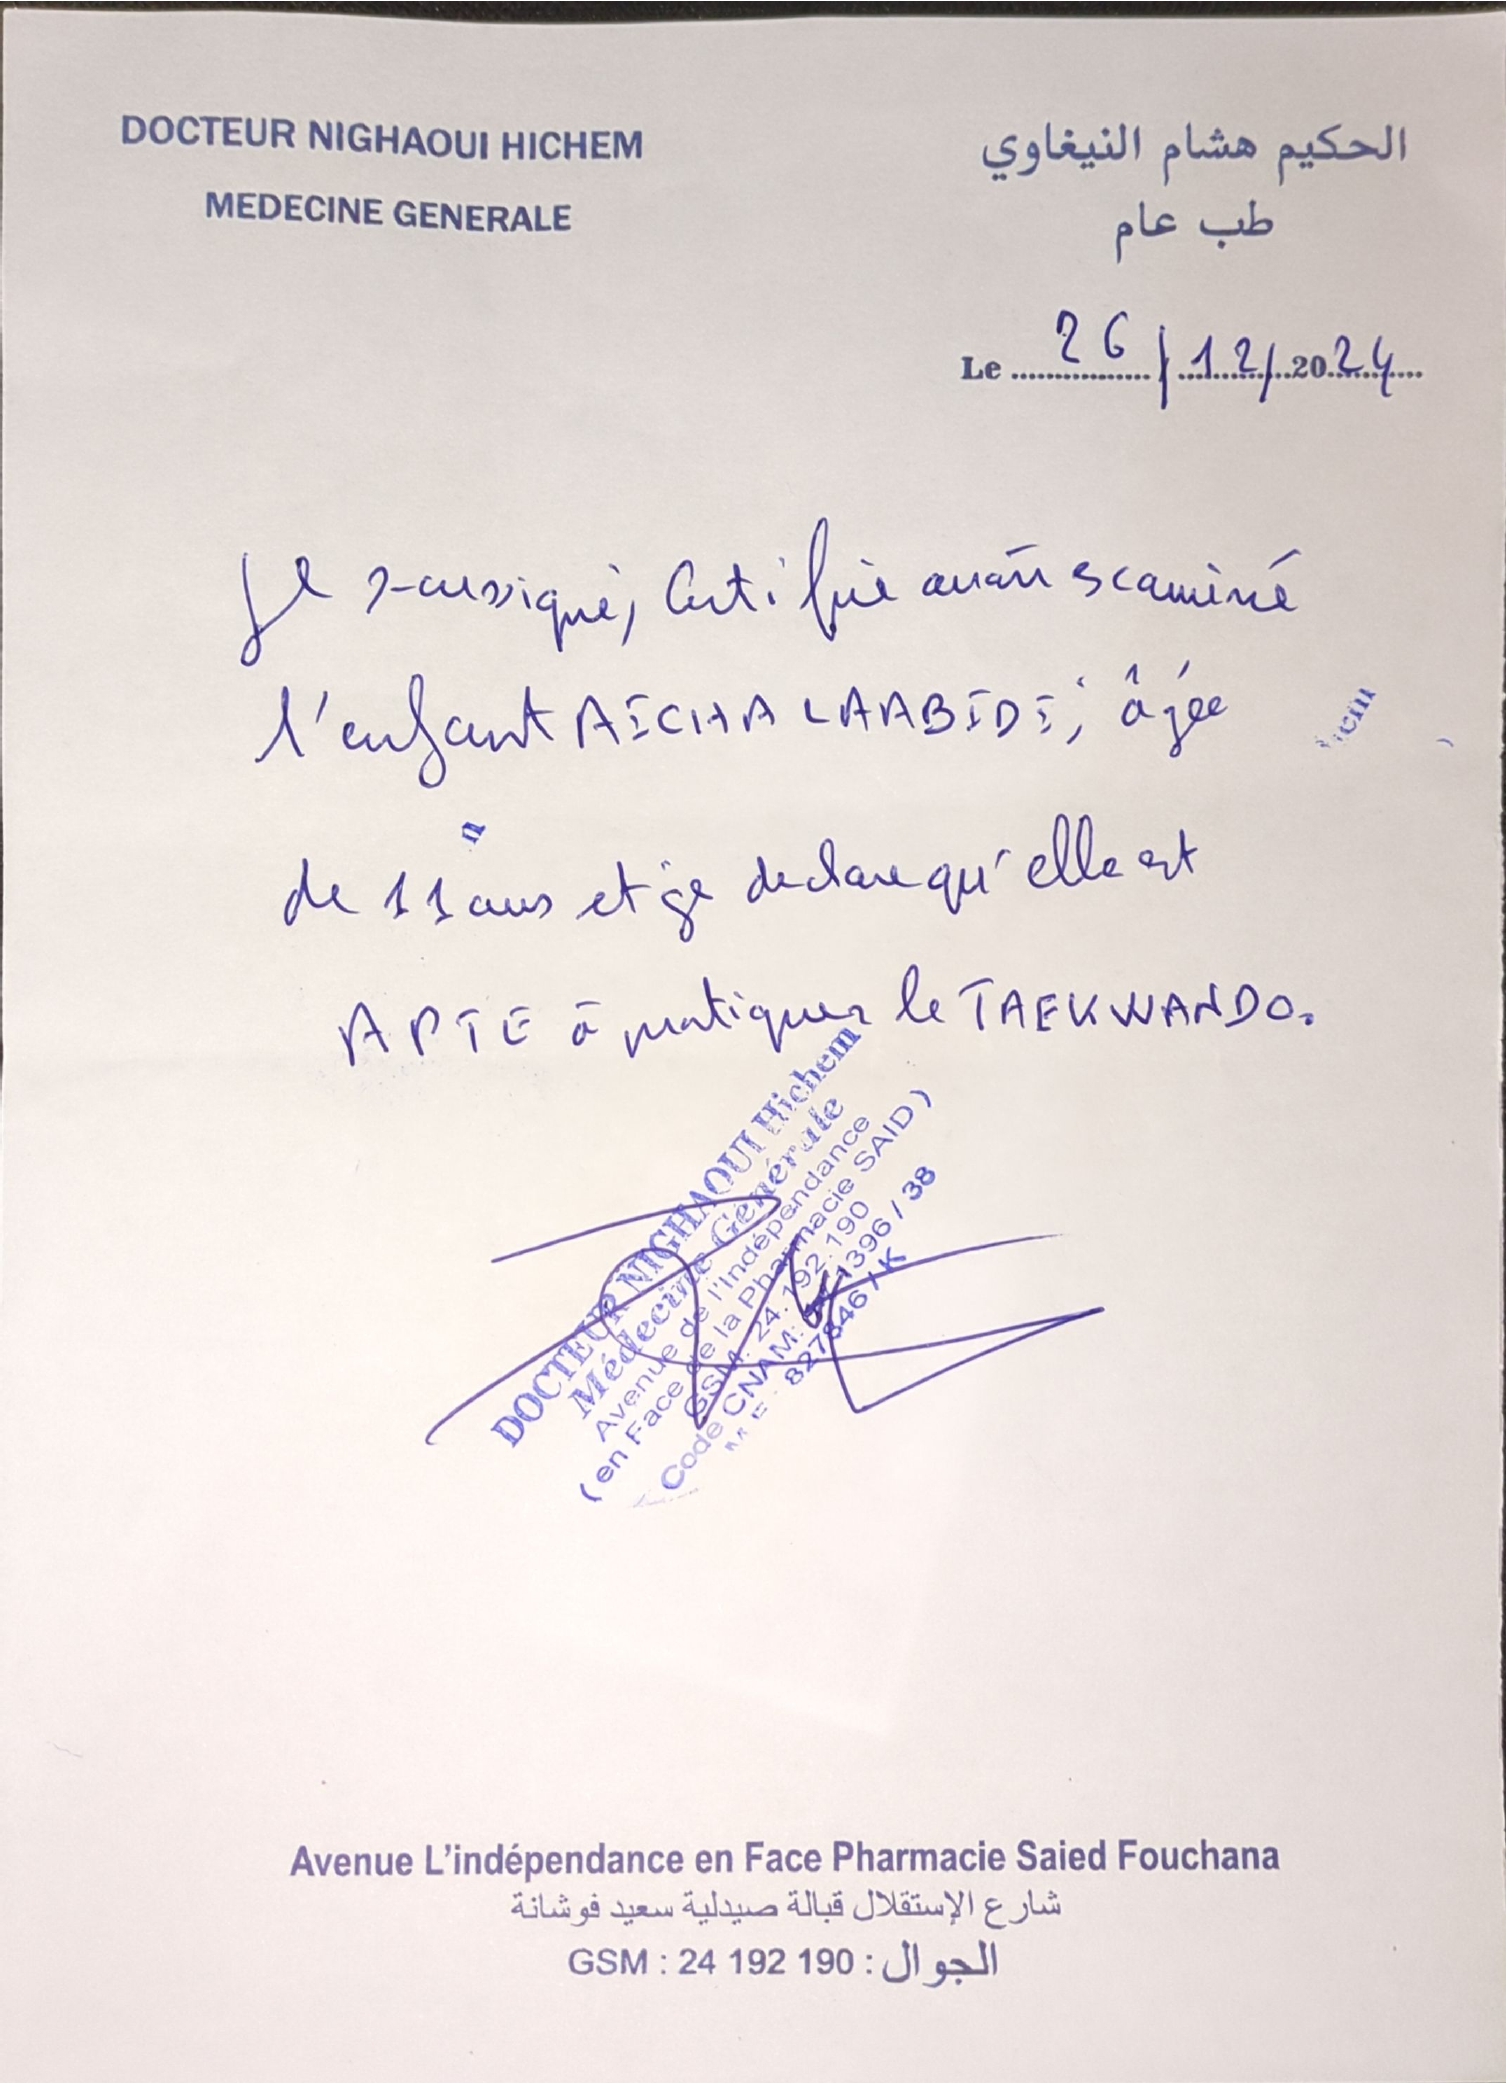 DOCTEUR NIGHAOUI HICHEM
MEDECINE GENERALE
الحكيم هشام النيغاوي
طب عام
Le 26/12/2024
Je soussigné, Certifie avoir examiné
l'enfant AICHA LAABIDI, âgée
de 11 ans et je declare qu'elle est
APTE à pratiquer le TAEKWANDO.
DOCTEUR NIGHAOUI Hichem
Médecine Générale
Avenue de l'Indépendance
(en Face de la Pharmacie SAID)
GSM: 24.192.190
Code CNAM: 1396 / 38
827846 / K
Avenue L'indépendance en Face Pharmacie Saied Fouchana
شارع الإستقلال قبالة صيدلية سعيد فوشانة
GSM : 24 192 190 : الجوال